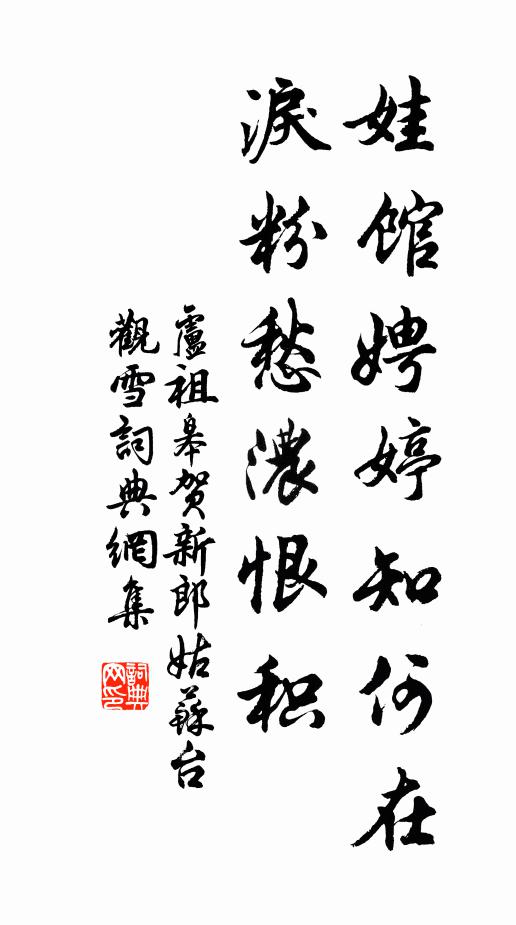 娃馆娉婷知何在
淚粉愁濃恨积
盧祖皋贺新郎姑蘇台
觀雪詞典網集
詞典网印